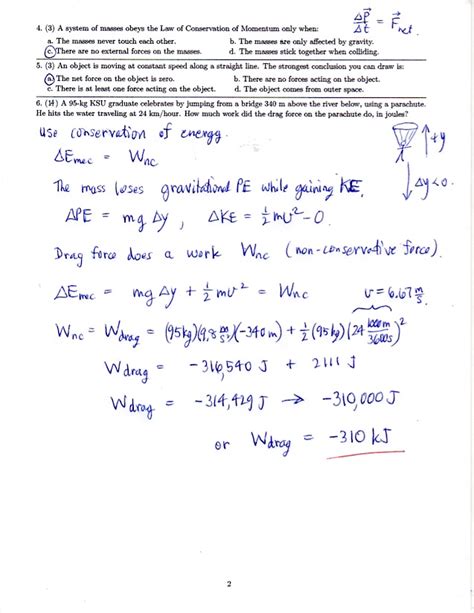 ΔP⃗/Δt = F⃗net.
4. (3) A system of masses obeys the Law of Conservation of Momentum only when:
a. The masses never touch each other. b. The masses are only affected by gravity.
c. There are no external forces on the masses. d. The masses stick together when colliding.
5. (3) An object is moving at constant speed along a straight line. The strongest conclusion you can draw is:
a. The net force on the object is zero. b. There are no forces acting on the object.
c. There is at least one force acting on the object. d. The object comes from outer space.
6. (14) A 95-kg KSU graduate celebrates by jumping from a bridge 340 m above the river below, using a parachute.
He hits the water traveling at 24 km/hour. How much work did the drag force on the parachute do, in joules?
Use conservation of energy.
+y
ΔEmec = Wnc
Δy<0.
The mass loses gravitational PE while gaining KE.
ΔPE = mgΔy, ΔKE = ½mv²-0.
Drag force does a work Wnc (non-conservative force).
ΔEmec = mgΔy + ½mv² = Wnc v = 6.67 m/s.
Wnc = Wdrag = (95kg)(9.8 m/s²)(-340m) + ½(95kg)(24 1000m/3600s)²
Wdrag = -316,540 J + 2111 J
Wdrag = -314,429 J → -310,000 J
or Wdrag = -310 kJ
2